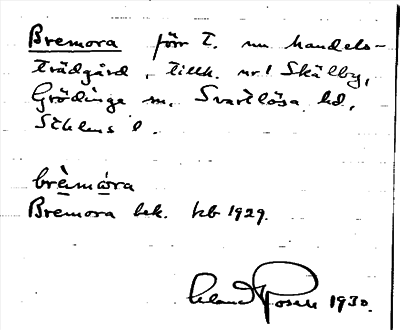 Bremora förr t. nu handels-
trädgård, tillh. nr 1 Skälby,
Grödinge sn, Svartlösa hd,
Sthlms l.
brèmòra
Bremora bek. kb 1929.
1930.